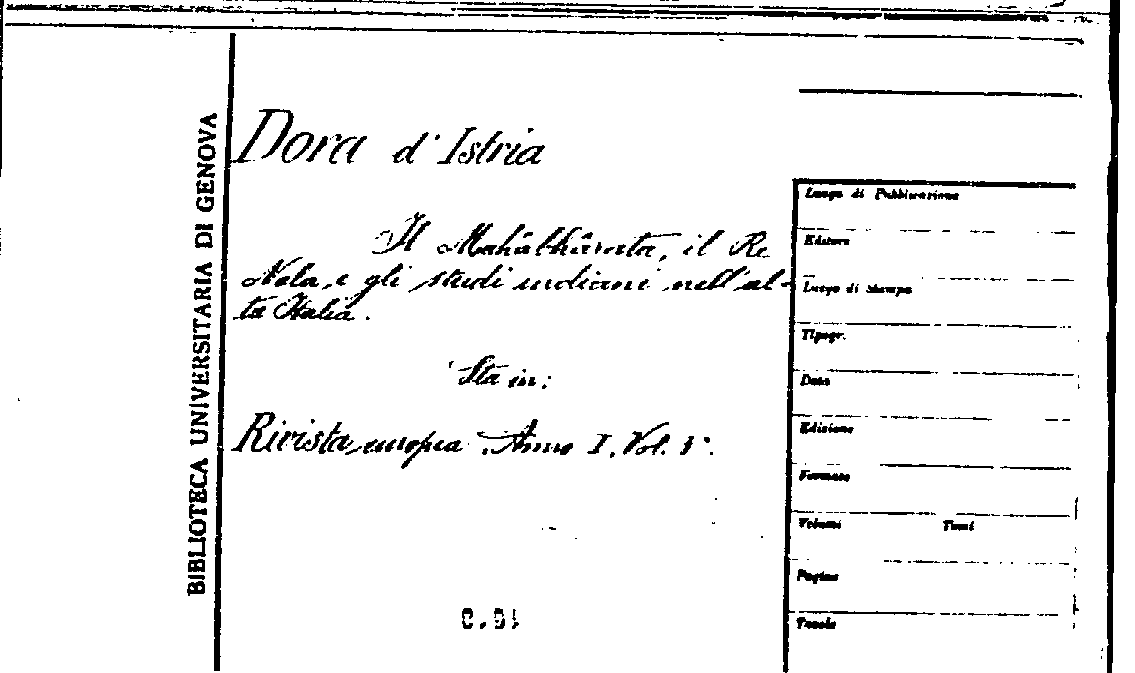 BIBLIOTECA UNIVERSITARIA DI GENOVA
Dora d'Istria
Il Mahâbhârata, il Re
Nala, e gli studi indiani nell'al-
ta Italia.
Sta in:
Rivista europea. Anno I, Vol.
Luogo di Pubblicazione
Editore
Luogo di Stampa
Tipogr.
Data
Edizione
Formato
Volumi Tomi
Pagine
Tavole